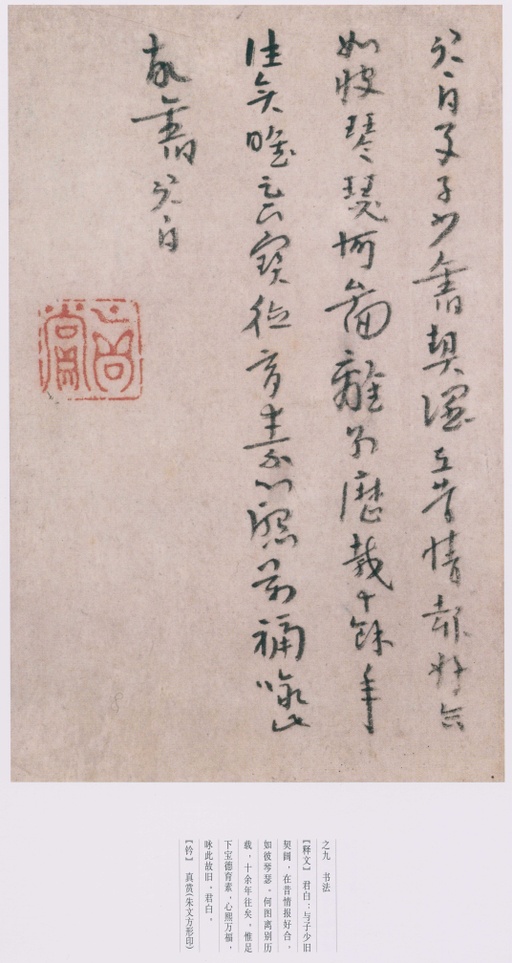 君白与子少舊契闊在昔情報好合
如彼琴瑟何圖離別歷載十餘年
往矣惟足下寶德育素心熙万福咏此
故舊君白
真賞
之九 书法
【释文】 君白：与子少旧
契阔，在昔情报好合，
如彼琴瑟。何图离别历
载，十余年往矣。惟足
下宝德育素，心熙万福，
咏此故旧，君白。
【钤】 真赏(朱文方形印)